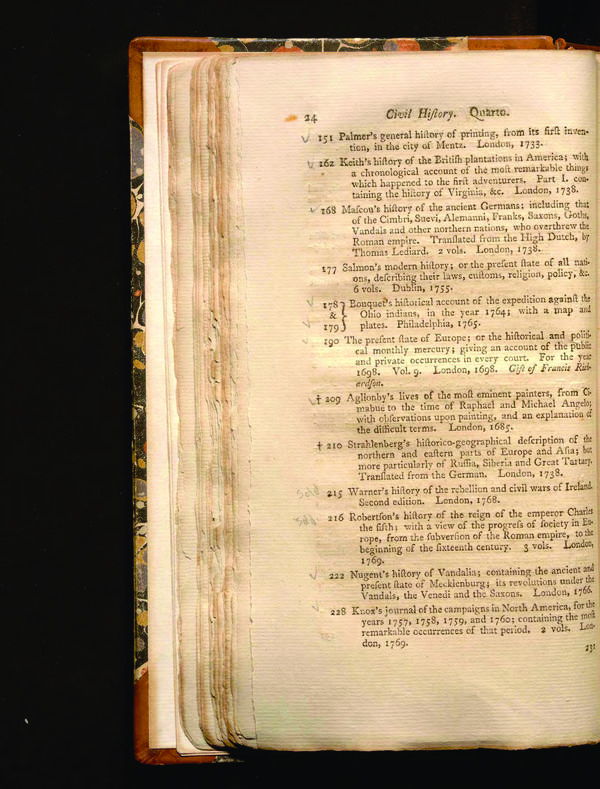 24 Civil Hiſtory. Quarto.
151 Palmer's general hiſtory of printing, from its firſt inven-
tion, in the city of Mentz. London, 1733.
162 Keith's hiſtory of the Britiſh plantations in America; with
a chronological account of the moſt remarkable things
which happened to the firſt adventurers. Part I. con-
taining the hiſtory of Virginia, &c. London, 1738.
168 Maſcou's hiſtory of the ancient Germans; including that
of the Cimbri, Suevi, Alemanni, Franks, Saxons, Goths,
Vandals and other northern nations, who overthrew the
Roman empire. Tranſlated from the High Dutch, by
Thomas Lediard. 2 vols. London, 1738.
177 Salmon's modern hiſtory; or the preſent ſtate of all nati-
ons, deſcribing their laws, cuſtoms, religion, policy, &c.
6 vols. Dublin, 1755.
178 } Bouquet's hiſtorical account of the expedition againſt the
& } Ohio indians, in the year 1764; with a map and
179 } plates. Philadelphia, 1765.
190 The preſent ſtate of Europe; or the hiſtorical and politi-
cal monthly mercury; giving an account of the public
and private occurrences in every court. For the year
1698. Vol. 9. London, 1698. Gift of Francis Rich-
ardſon.
† 209 Aglionby's lives of the moſt eminent painters, from Ci-
mabue to the time of Raphael and Michael Angelo;
with obſervations upon painting, and an explanation of
the difficult terms. London, 1685.
† 210 Strahlenberg's hiſtorico-geographical deſcription of the
northern and eaſtern parts of Europe and Aſia; but
more particularly of Ruſſia, Siberia and Great Tartary.
Tranſlated from the German. London, 1738.
215 Warner's hiſtory of the rebellion and civil wars of Ireland.
Second edition. London, 1768.
216 Robertſon's hiſtory of the reign of the emperor Charles
the fifth; with a view of the progreſs of ſociety in Eu-
rope, from the ſubverſion of the Roman empire, to the
beginning of the ſixteenth century. 3 vols. London,
1769.
222 Nugent's hiſtory of Vandalia; containing the ancient and
preſent ſtate of Mecklenburg; its revolutions under the
Vandals, the Venedi and the Saxons. London, 1766.
228 Knox's journal of the campaigns in North America, for the
years 1757, 1758, 1759, and 1760; containing the moſt
remarkable occurrences of that period. 2 vols. Lon-
don, 1769.
231